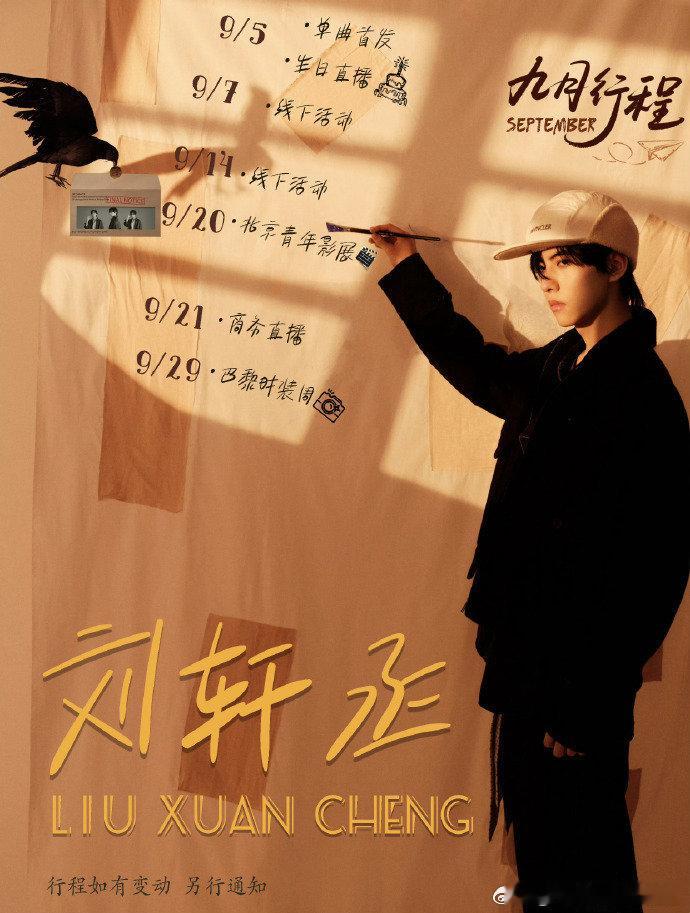 九月行程
SEPTEMBER
9/5 ·单曲首发
·生日直播
9/7 ·线下活动
9/14 ·线下活动
9/20 ·北京青年影展
9/21 ·商务直播
9/29 ·巴黎时装周
FINAL NOTICE
刘轩丞
LIU XUAN CHENG
行程如有变动 另行通知